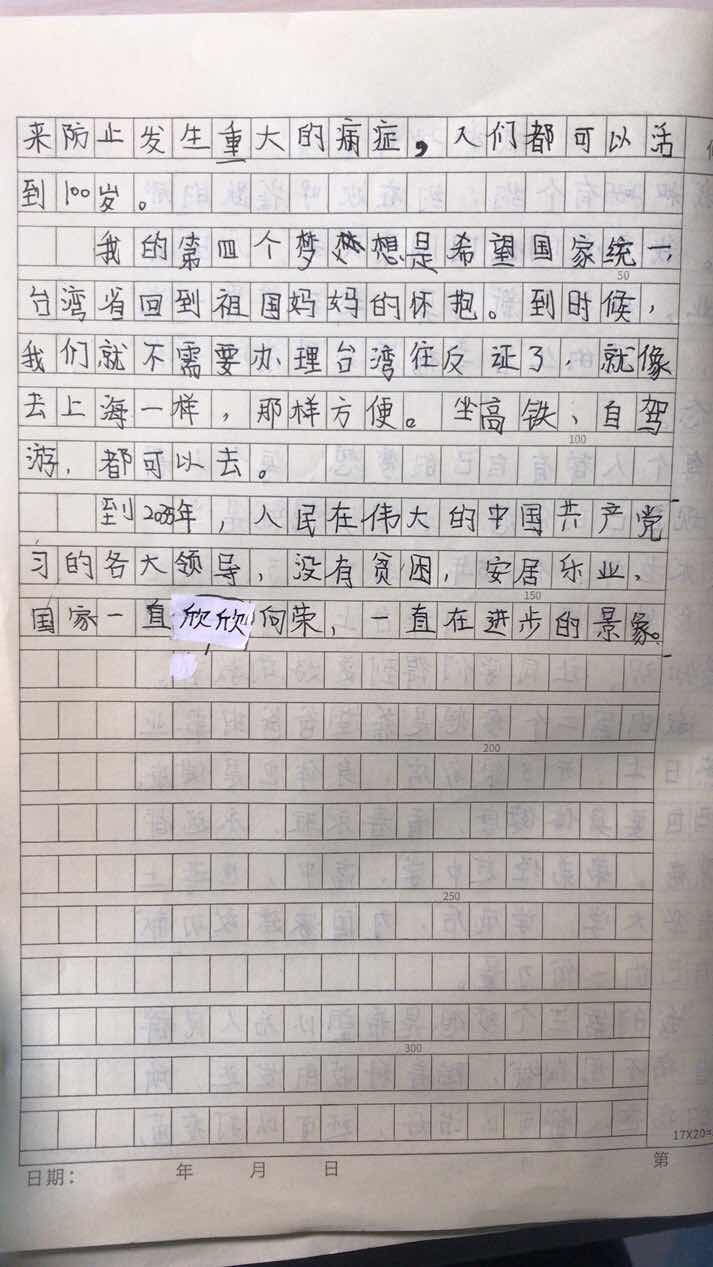 来防止发生重大的病症，人们都可以活
到100岁。
我的第四个梦想是希望国家统一，
50
台湾省回到祖国妈妈的怀抱。到时候，
我们就不需要办理台湾往反证了，就像
去上海一样，那样方便。坐高铁、自驾
100
游，都可以去。
到2035年，人民在伟大的中国共产党
习的各大领导，没有贫困，安居乐业，
150
国家一直欣欣向荣，一直在进步的景象。
200
250
300
17X20=
日期： 年 月 日 第